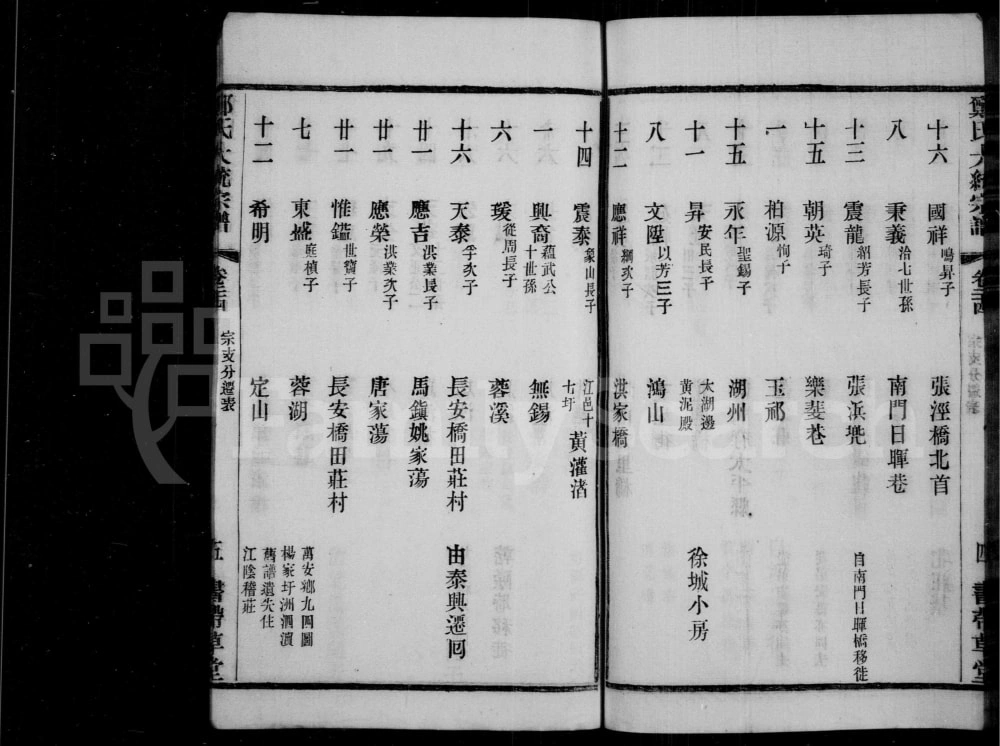 鄭氏大統宗譜 卷三十四 四 書帶草堂
十六 國祥 鳴昇子 張涇橋北首
八 秉義 洽七世孫 南門日暉巷
十三 震龍 紹芳長子 張浜兜 自南門日暉橋移徙
十五 朝英 琦子 樂斐巷
一 柏源 恂子 玉祁
十五 永年 聖錫子 湖州
十一 昇 安民長子 太湖邊黃泥殿 徐城小房
八 文陞 以芳三子 鴻山
十二 應祥 綱次子 洪家橋
十四 震泰 象山長子 江邑十七圩 黃灌渚
一 興裔 蘊武公十世孫 無錫
六 瑗 從周長子 蓉溪
十六 天泰 孚次子 長安橋田莊村 由泰興遷回
廿一 應吉 洪業長子 馬鎭姚家蕩
廿一 應榮 洪業次子 唐家蕩
廿一 惟鎰 世寶子 長安橋田莊村
七 東盛 庭楨子 蓉湖 萬安鄉九四圖楊家圩洲泗濱
十二 希明 定山 舊譜遺失住江陰稽莊
鄭氏大統宗譜 卷三十四 宗支分遷表 五 書帶草堂
FamilySearch